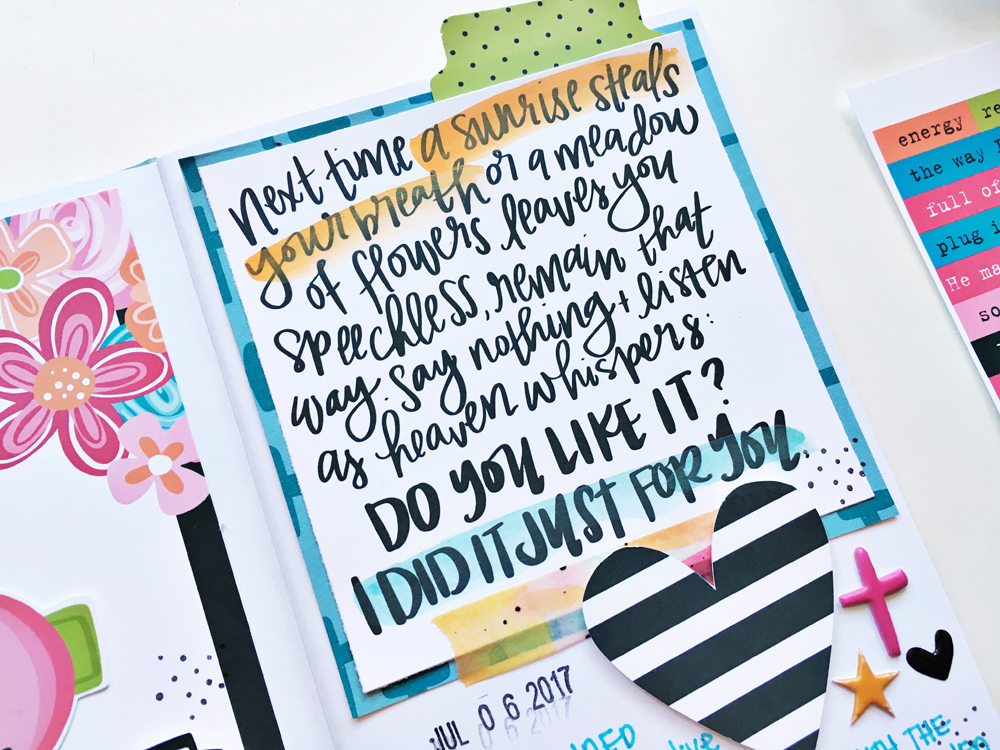 next time a sunrise steals
your breath or a meadow
of flowers leaves you
speechless, remain that
way. say nothing + listen
as heaven whispers:
DO YOU LIKE IT?
I DID IT JUST FOR YOU.
JUL 06 2017
energy
the way
full of
plug
He